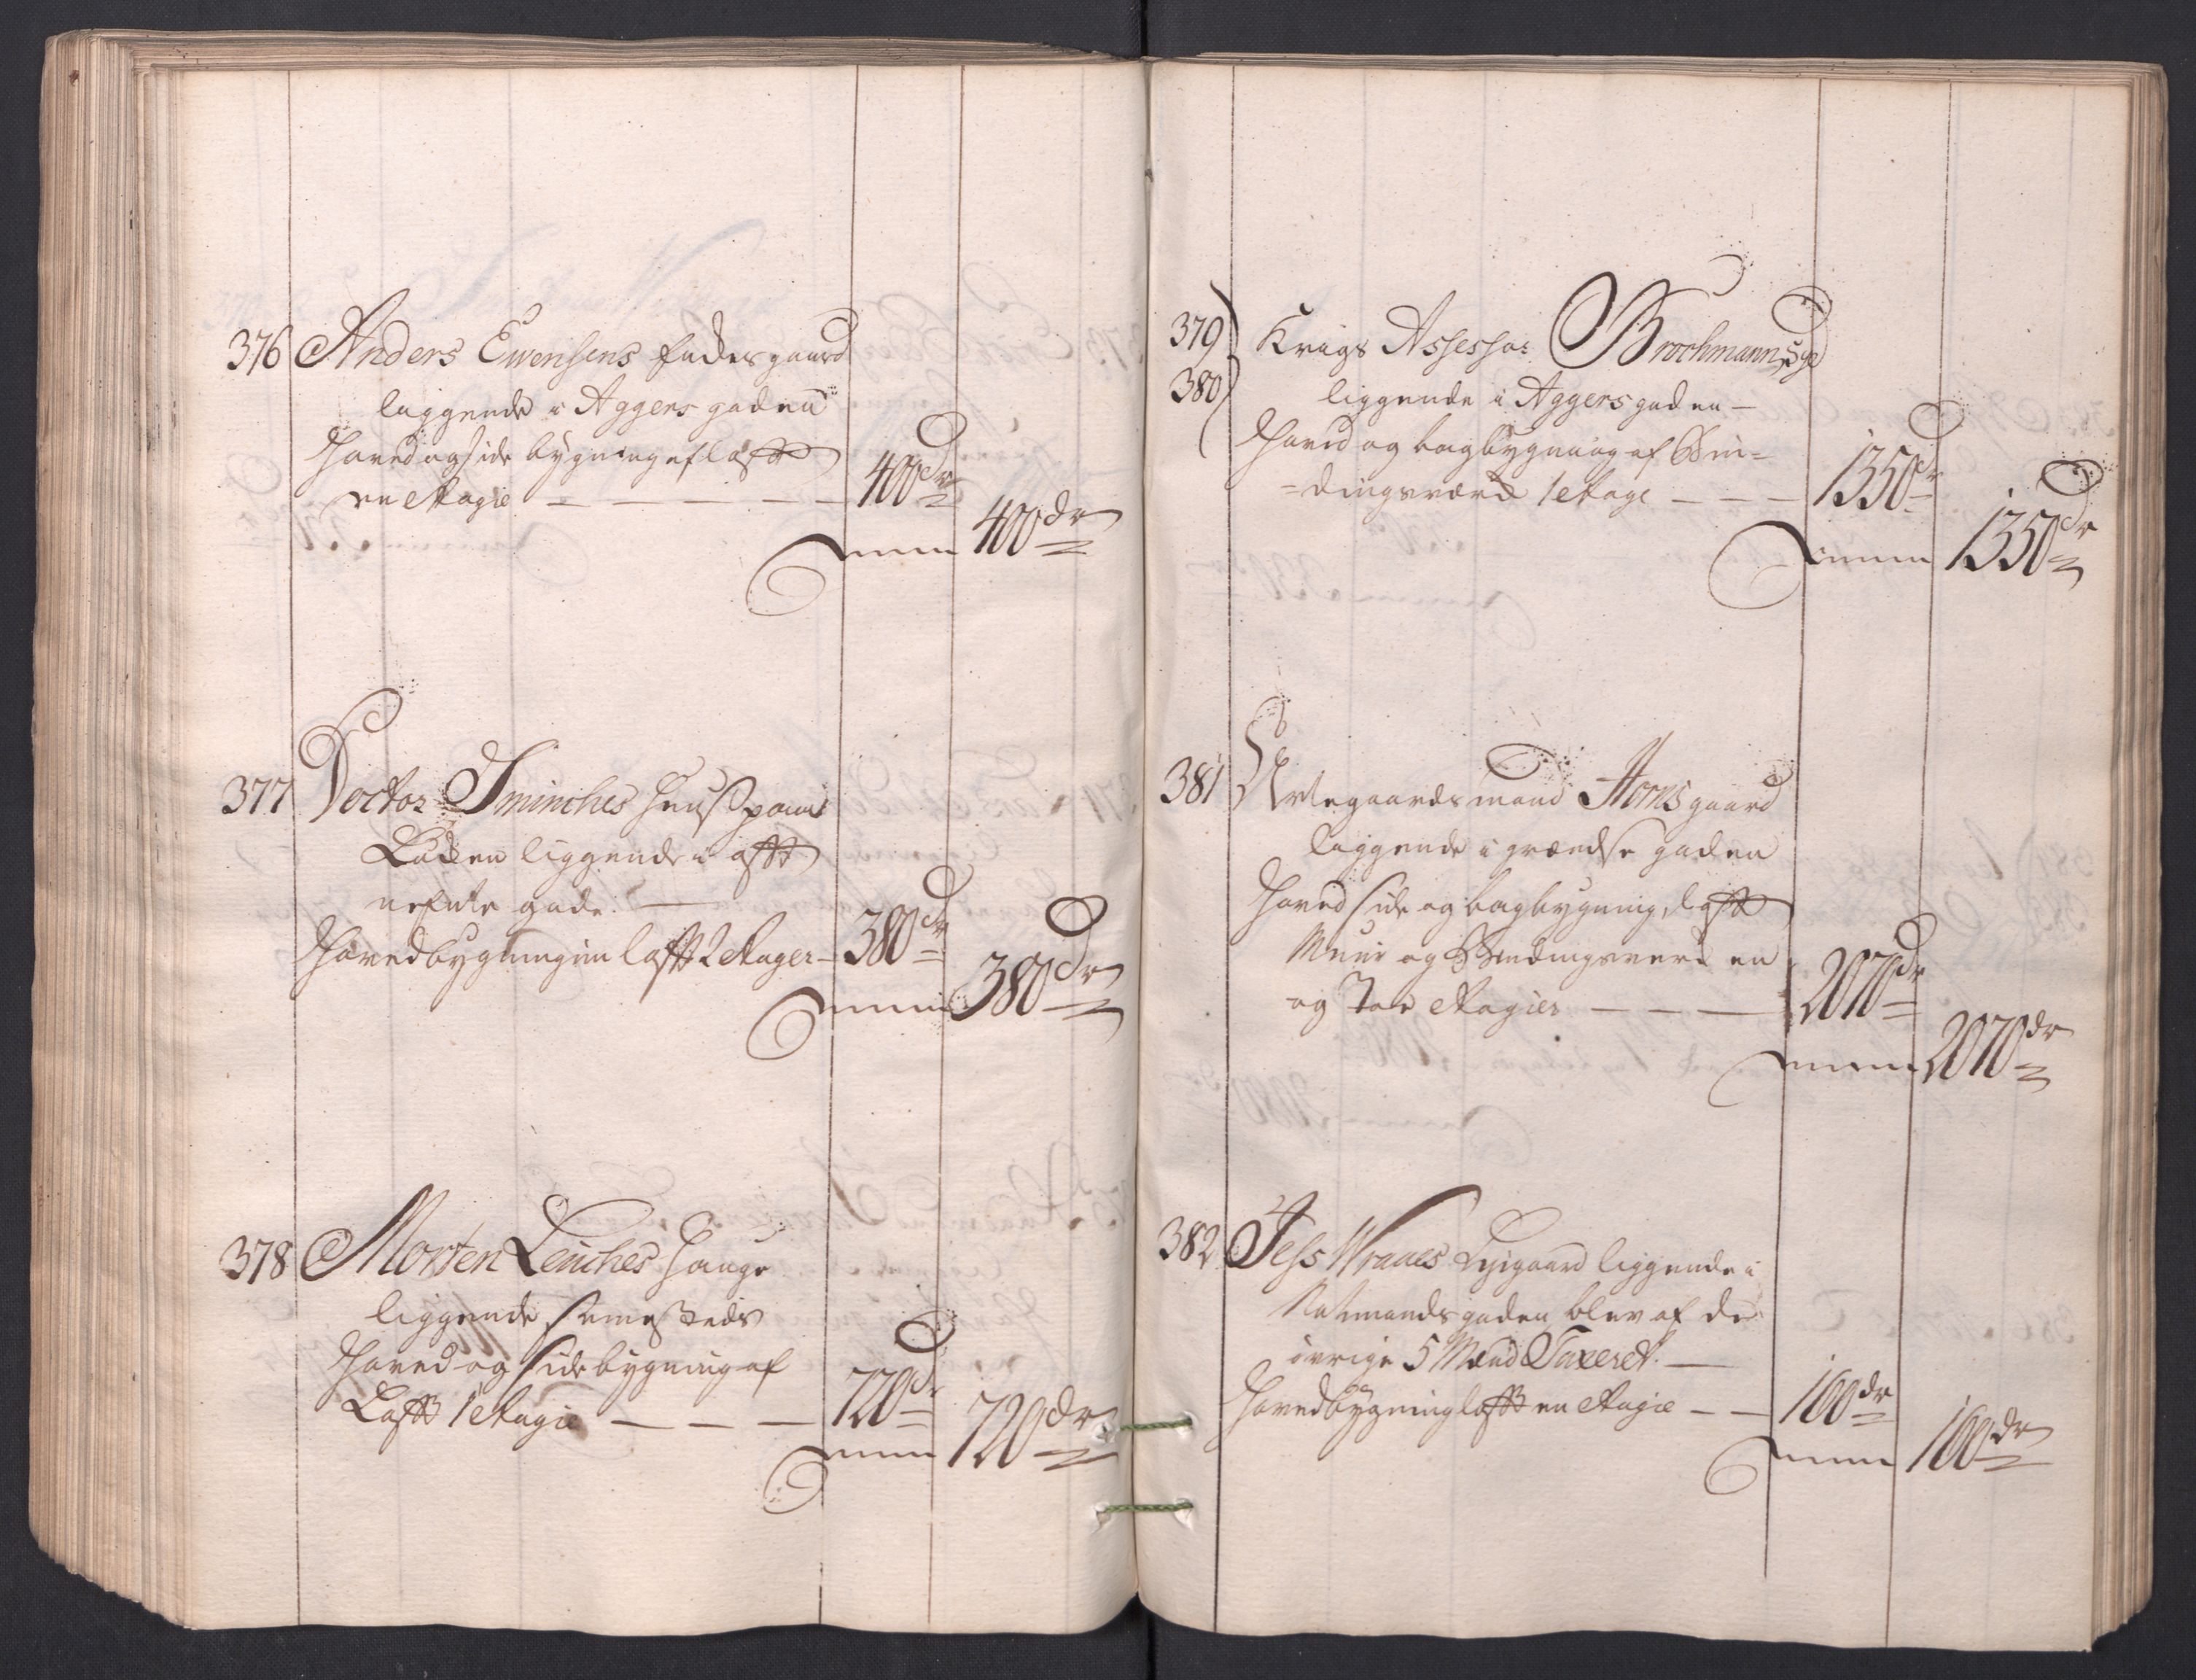 376 Anders Ewensens fædes gaard
liggende i Aggers gaden
Hoved og side bygning af laft
en Etagie — — — — — 400 dr
Summa 400 dr
377 Doctor Sminches huus paa
Løcken liggende i aft
nefnte gade. —
Hovedbygningen laft 2 Etager — 380 dr
Summa 380 dr
378 Morten Leuches Hauge
liggende sammesteds
Hoved og side bygning af
Laft 1 Etagie — — — 720 dr
Summa 720 dr
379
380 Krigs Assessor Brochmanns
liggende i Aggers gaden —
Hoved og bagbygning af Bin=
=dingsværk 1 Etage — — — 1350 dr
Summa 1350 dr
381 Urtegaardsmand Horns gaard
liggende i grændse gaden
Hoved side og bagbygning, laft
Muur og Bindingsverk en
og Toe Etagier — — — 2070 dr
Summa 2070 dr
382 Jess Wraaes Leigaard liggende i
Ratmandsgaden blev af de
øvrige 5 Mænd Taxeret. —
Hovedbygning laft en Etagie — — 100 dr
Summa 100 dr